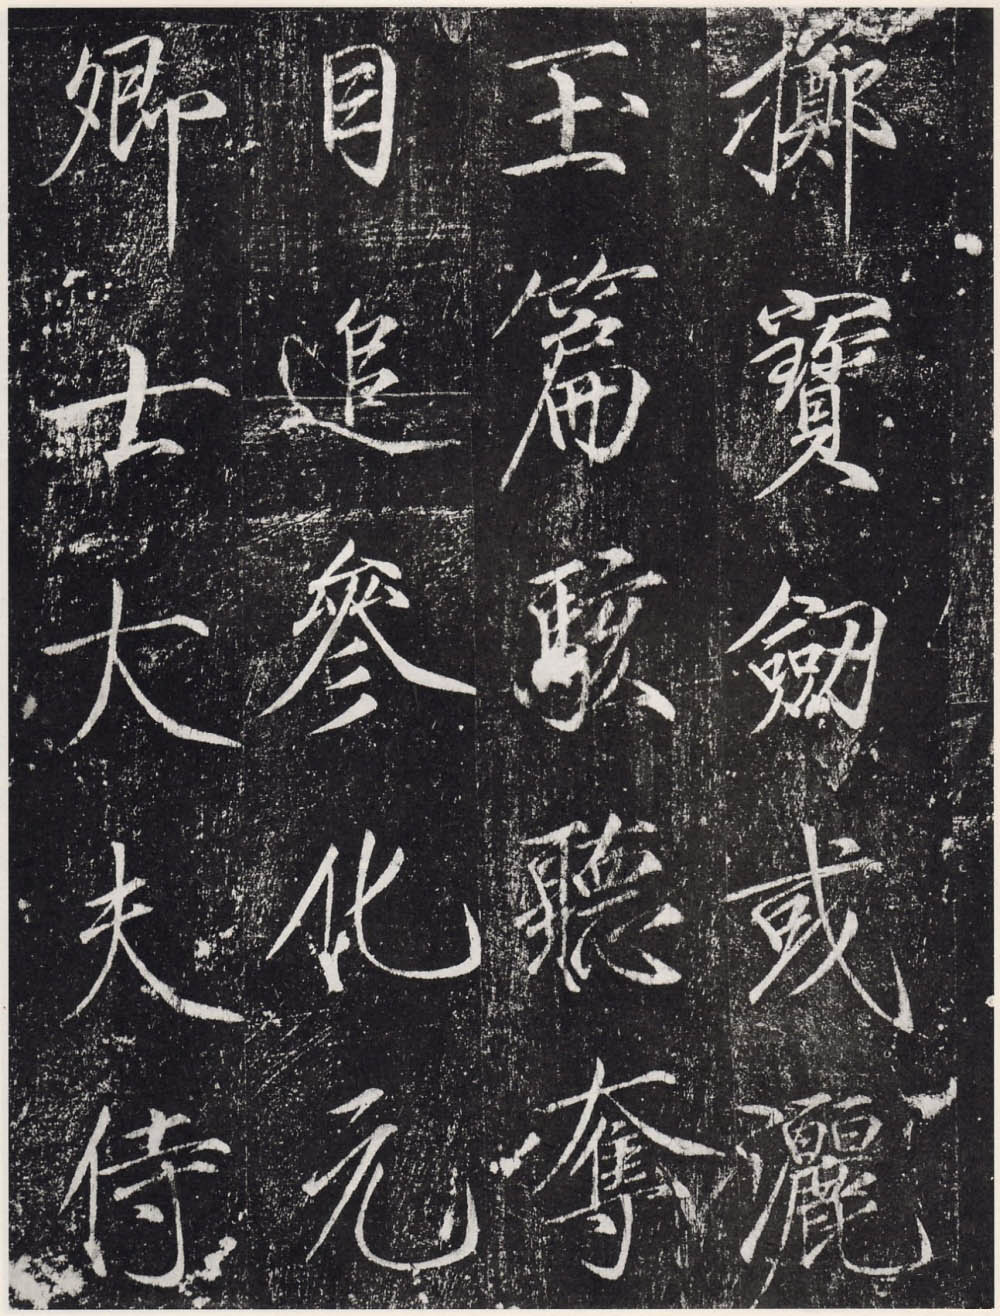 擲寶劒或灑
玉篇駭聽奪
目追參化元
卿士大夫侍